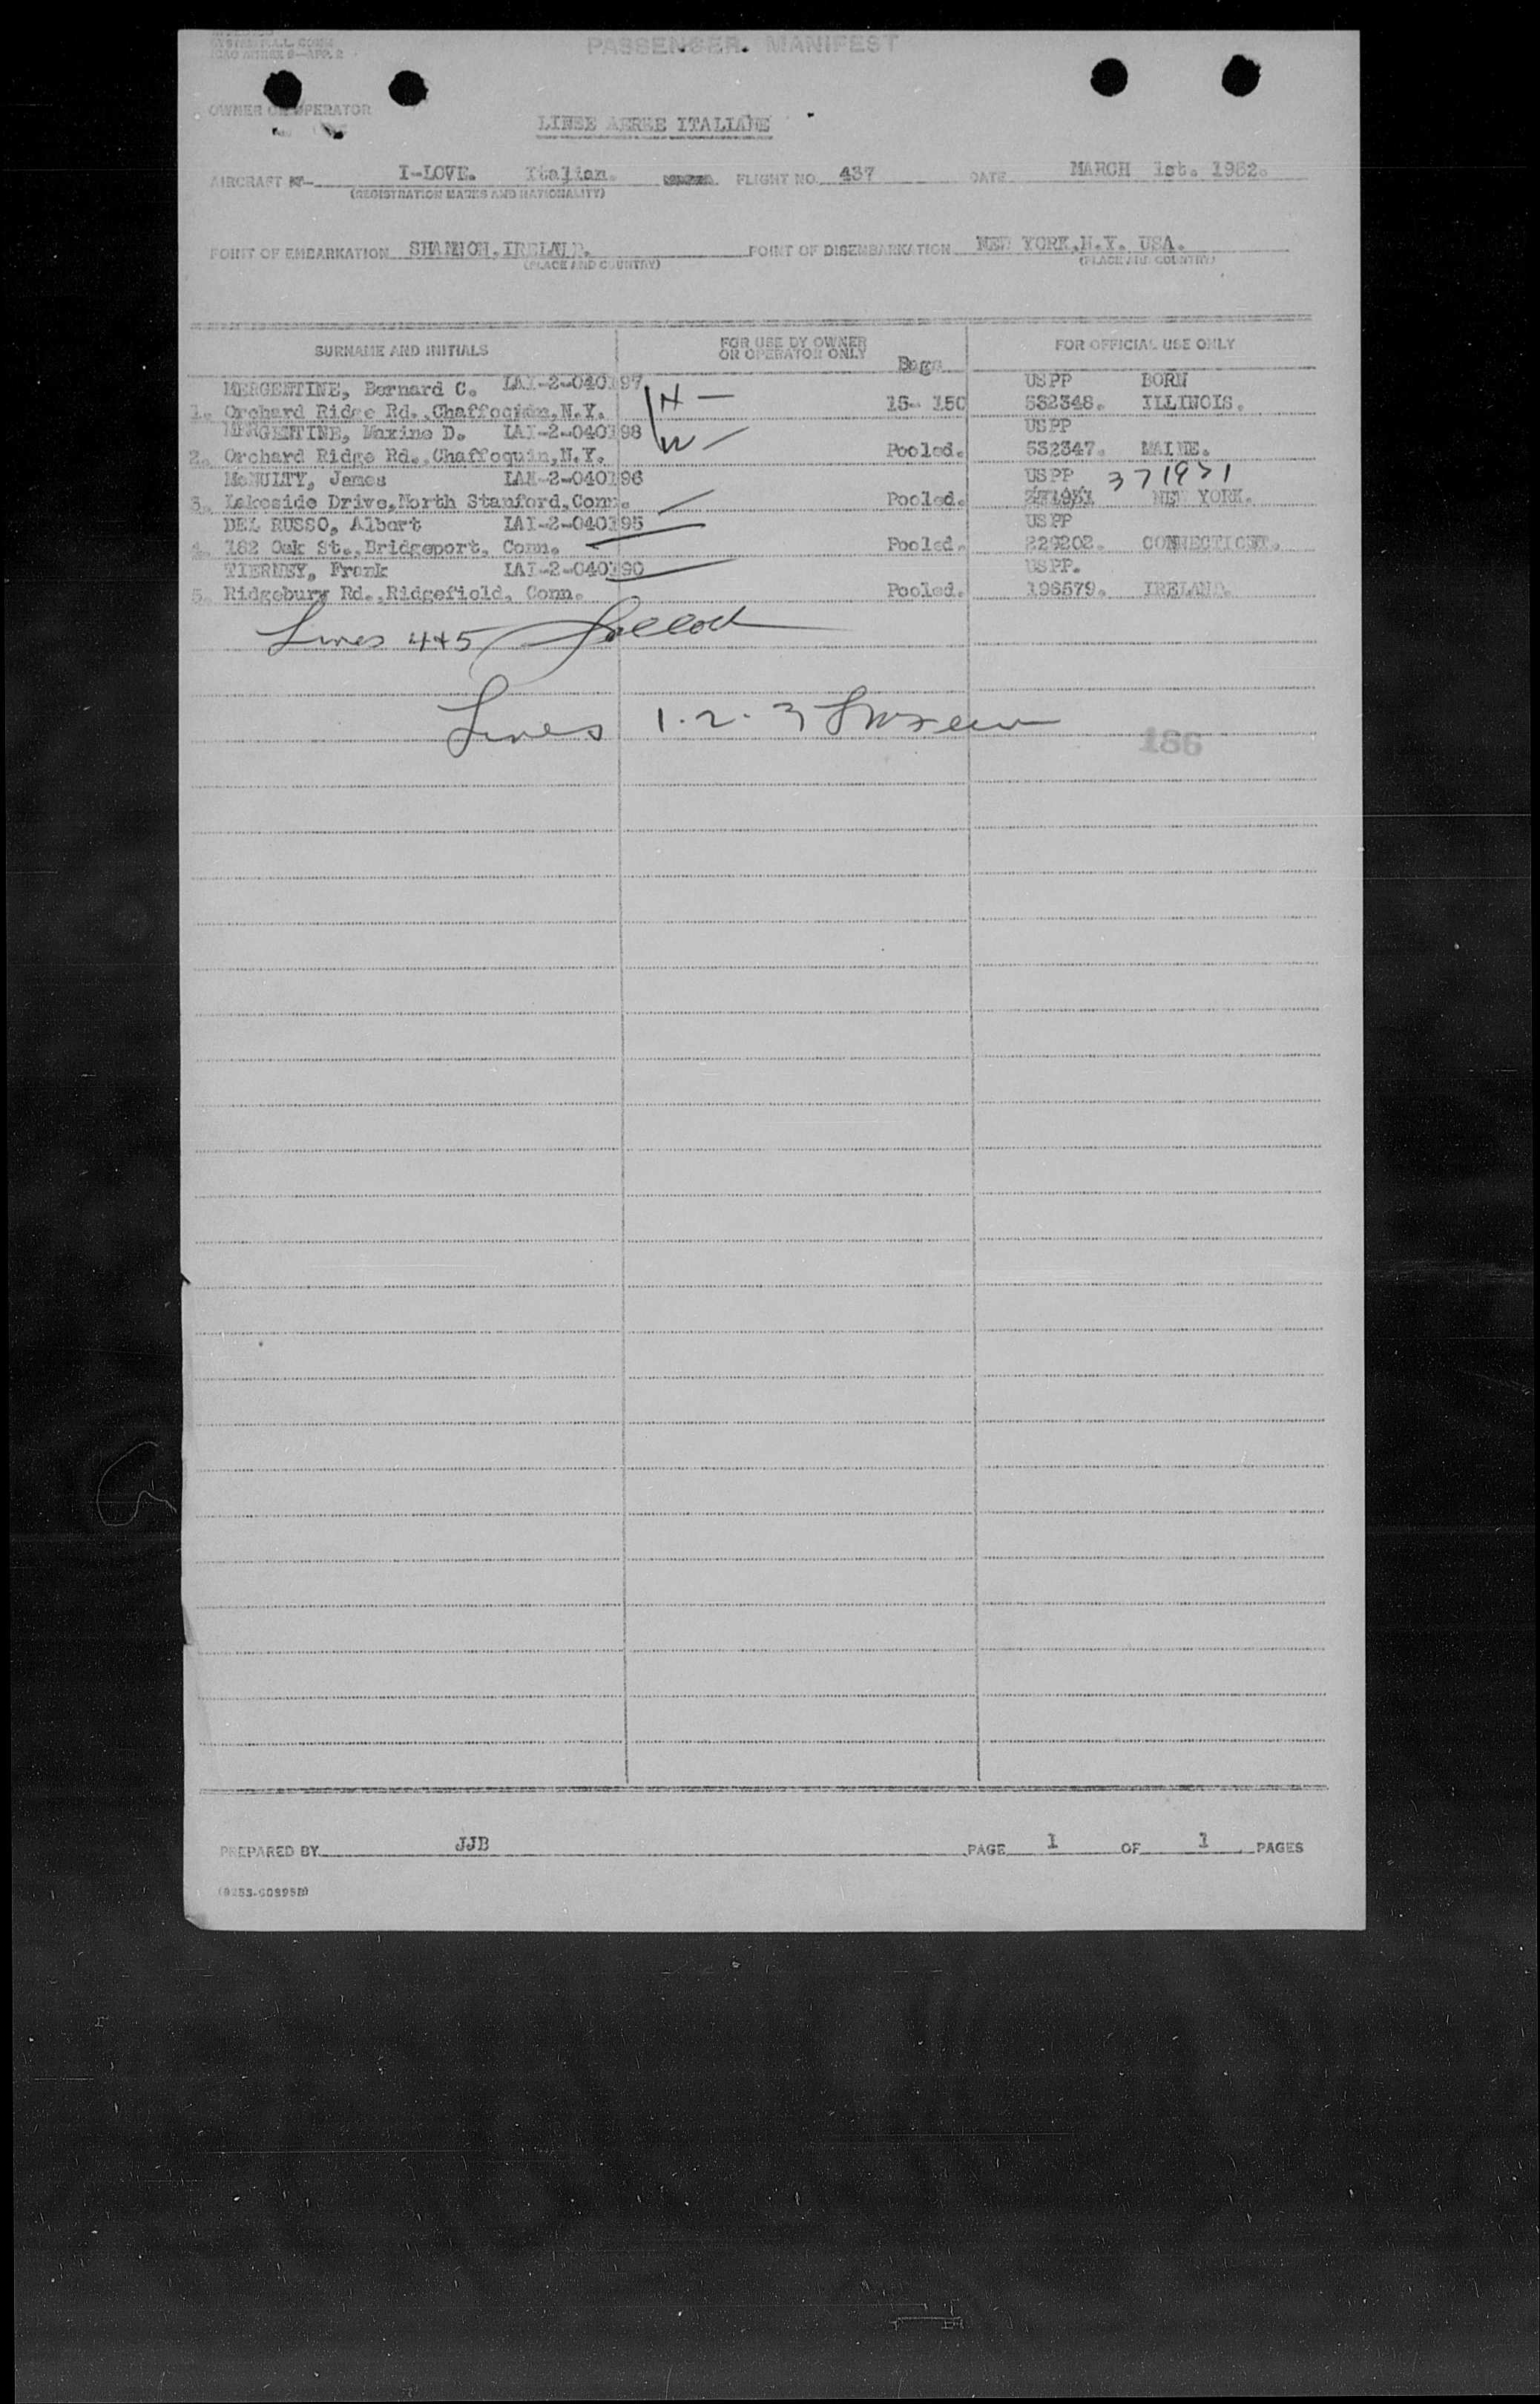 PASSENGER MANIFEST
ICAO ANNEX 9—APP. 2
OWNER OR OPERATOR
LINEE AEREE ITALIANE
AIRCRAFT I-LOVE. Italian. FLIGHT NO. 437 DATE MARCH 1st. 1952.
(REGISTRATION MARKS AND NATIONALITY)
POINT OF EMBARKATION SHANNON, IRELAND. POINT OF DISEMBARKATION NEW YORK, N.Y. USA.
(PLACE AND COUNTRY) (PLACE AND COUNTRY)
SURNAME AND INITIALS FOR USE BY OWNER OR OPERATOR ONLY Bags FOR OFFICIAL USE ONLY
MERGENTINE, Bernard C. LAI-2-040197 USPP BORN
1. Orchard Ridge Rd., N.Y. H — 15- 150 532348. ILLINOIS.
MERGENTINE, Maxine D. LAI-2-040198 USPP
2. Orchard Ridge Rd., Chaffoquin, N.Y. W — Pooled. 532347. MAINE.
McNULTY, James LAI-2-040196 USPP 371931
3. Lakeside Drive, North Stanford, Conn. Pooled. NEW YORK.
DEL RUSSO, Albert LAI-2-040195 USPP
4. 182 Oak St., Bridgeport, Conn. Pooled. 229202. CONNECTICUT.
TIERNEY, Frank LAI-2-040190 USPP.
5. Ridgebury Rd., Ridgefield, Conn. Pooled. 196579. IRELAND.
Lines 4+5
Lines 1-2-3
186
PREPARED BY JJB PAGE 1 OF 1 PAGES